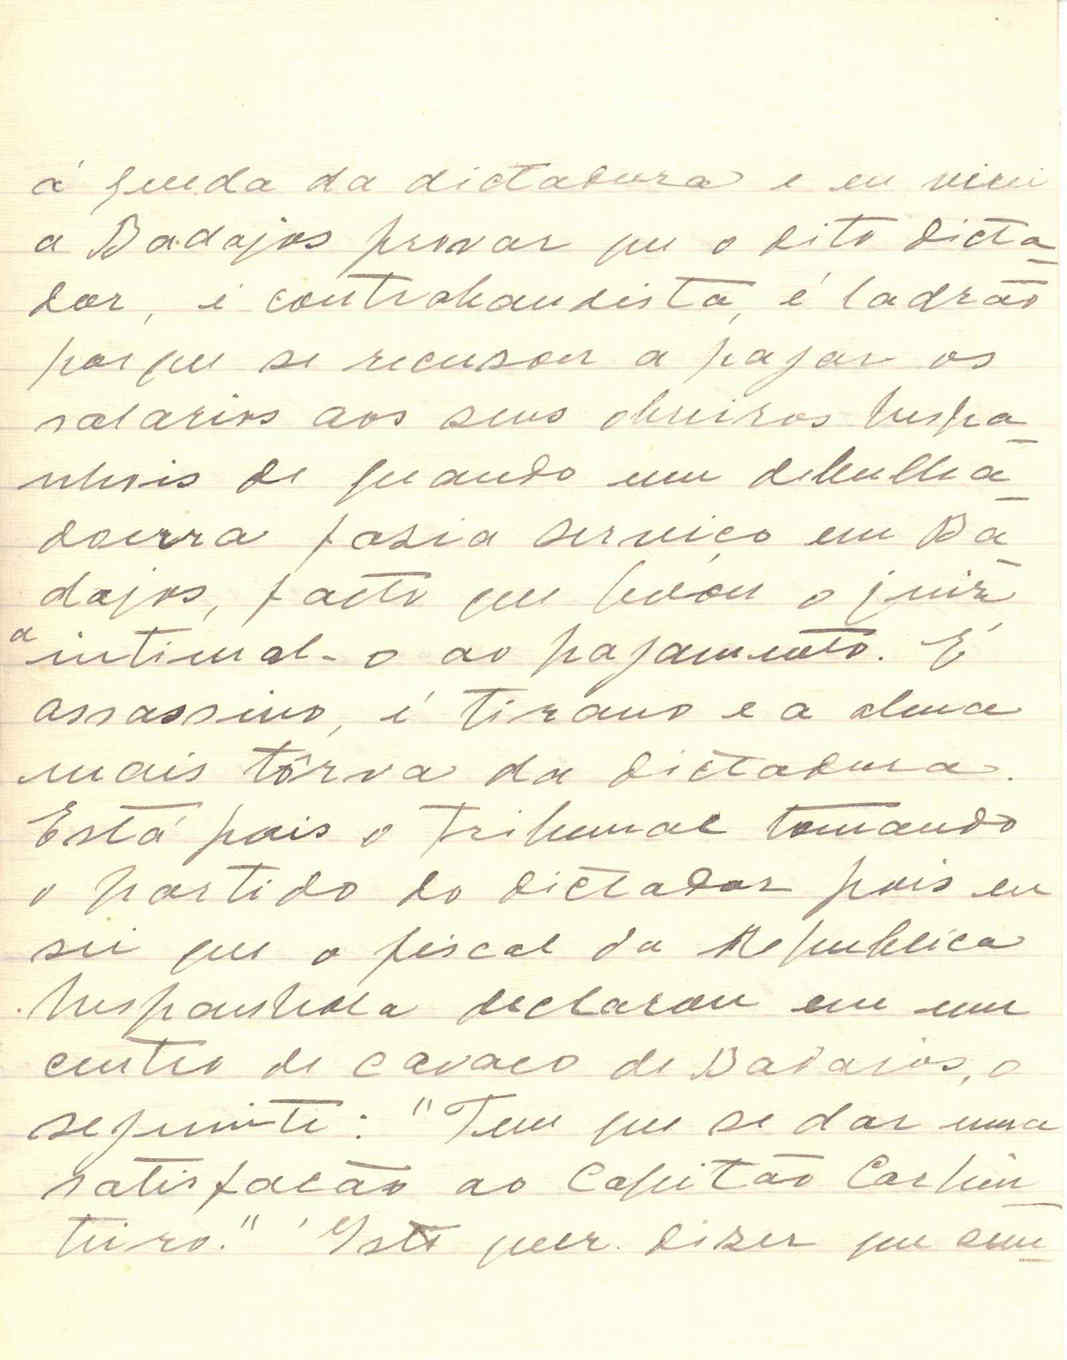 á queda da dictadura e eu vim
a Badajos provar que o dito dicta-
dor, é contrabandista, é ladrão
porque se recusou a pagar os
salarios aos seus obreiros hespa-
nhois de quando um debulha-
dourra fasia serviço em Ba-
dajos, facto que levou o juiz
a intimal-o ao pagamento. É
assassino, é tirano e a alma
mais tôrva da dictadura.
Está pois o tribunal tomando
o partido do dictador pois eu
sei que o fiscal da Republica
hespanhola declarou em um
centro de cavaco de Badajos, o
seguinte: "Tem que se dar uma
satisfacão ao Capitão Carpin-
teiro." Isto quer dizer que em